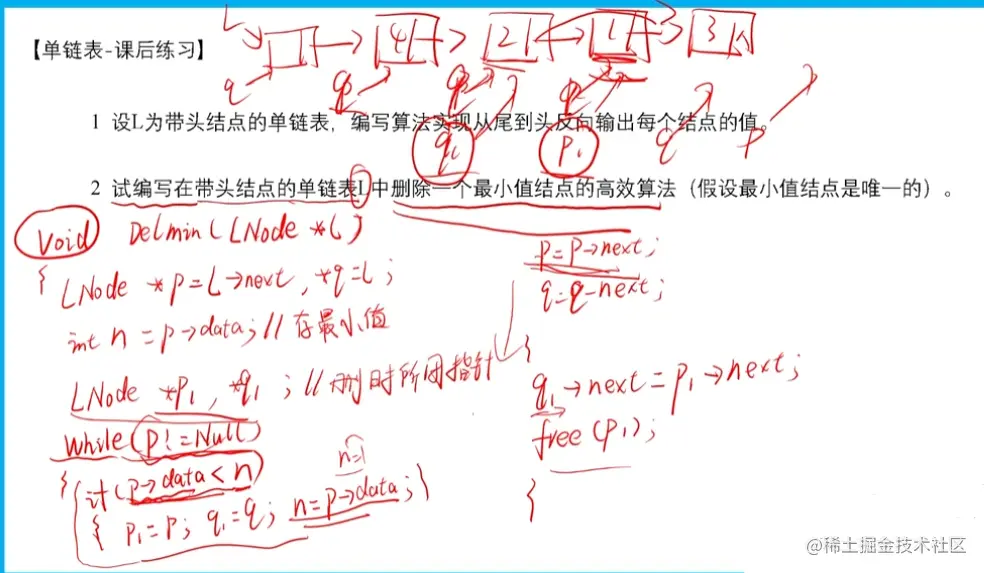 【单链表-课后练习】
L 4 2 1 3
q q q q q p
q1 p1
1 设L为带头结点的单链表，编写算法实现从尾到头反向输出每个结点的值。
2 试编写在带头结点的单链表L中删除一个最小值结点的高效算法（假设最小值结点是唯一的）。
Void Delmin(LNode *L)
{ LNode *p=L→next, *q=L;
int n = p→data; // 存最小值
LNode *p1, *q1; // 删时所用指针
While(p!=Null)
{ if(p→data<n)
n=1
{ p1=p; q1=q; n=p→data; }
p=p→next;
q=q-next;
}
q1→next=p1→next;
free(p1);
}
@稀土掘金技术社区